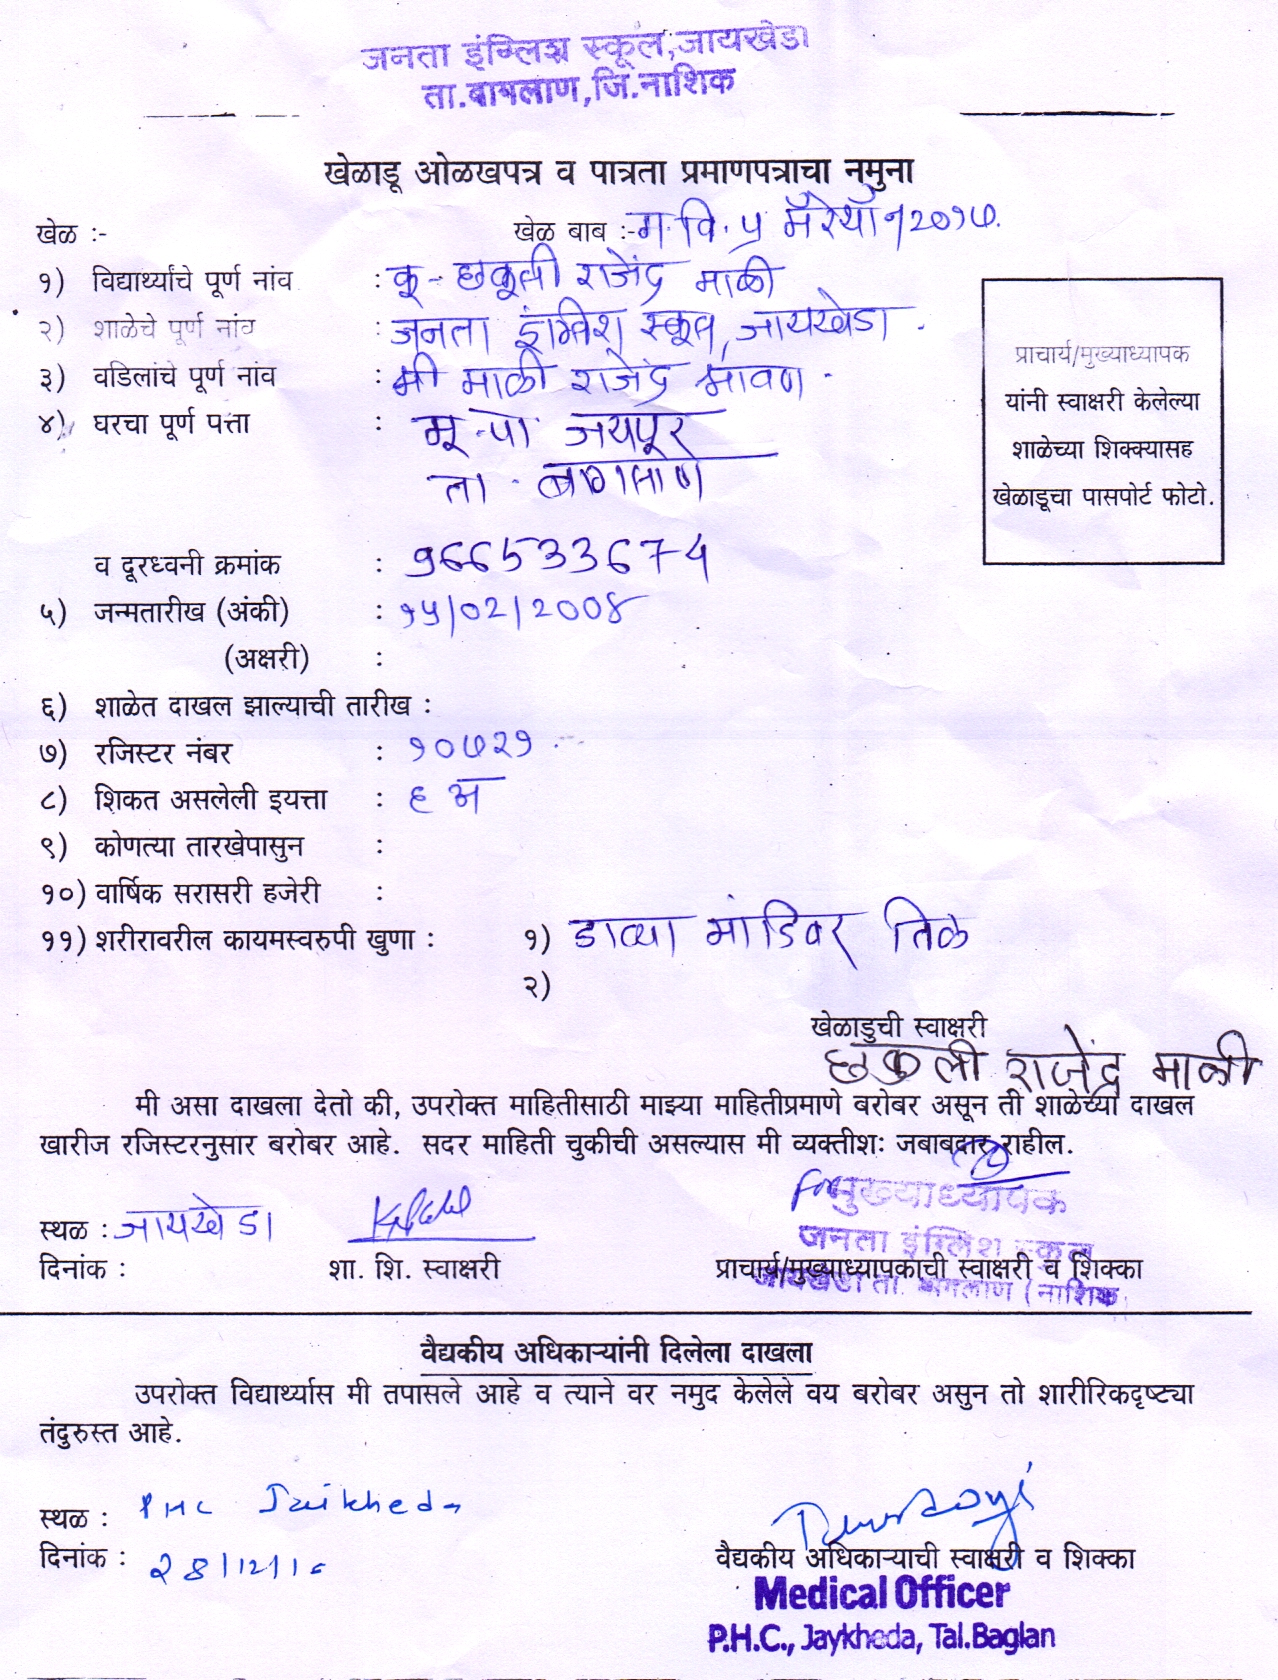 जनता इंग्लिश स्कूल,जायखेडा
ता.बागलाण,जि.नाशिक
खेळाडू ओळखपत्र व पात्रता प्रमाणपत्राचा नमुना
खेळ :- खेळ बाब :- म.वि.प्र मॅरेथॉन २०१७.
१) विद्यार्थ्यांचे पूर्ण नांव : कु - छकुली राजेंद्र माळी
२) शाळेचे पूर्ण नांव : जनता इंग्लिश स्कूल, जायखेडा.
३) वडिलांचे पूर्ण नांव : श्री माळी राजेंद्र श्रावण.
४) घरचा पूर्ण पत्ता : मू.पो जयपूर
ता. बागलाण
व दूरध्वनी क्रमांक :
५) जन्मतारीख (अंकी) : १५/02/2004
(अक्षरी) :
६) शाळेत दाखल झाल्याची तारीख :
७) रजिस्टर नंबर : १०७२१
८) शिकत असलेली इयत्ता : ६ अ
९) कोणत्या तारखेपासुन :
१०) वार्षिक सरासरी हजेरी :
११) शरीरावरील कायमस्वरुपी खुणा : १) डाव्या मांडिवर तिळ
२)
प्राचार्य/मुख्याध्यापक
यांनी स्वाक्षरी केलेल्या
शाळेच्या शिक्क्यासह
खेळाडूचा पासपोर्ट फोटो.
खेळाडुची स्वाक्षरी
छकुली राजेंद्र माळी
मी असा दाखला देतो की, उपरोक्त माहितीसाठी माझ्या माहितीप्रमाणे बरोबर असून ती शाळेच्या दाखल
खारीज रजिस्टरनुसार बरोबर आहे. सदर माहिती चुकीची असल्यास मी व्यक्तीशः जबाबदार राहील.
for मुख्याध्यापक
जनता इंग्लिश स्कुल
जायखेडा ता. बागलाण (नाशिक
स्थळ : जायखेडा
दिनांक : शा. शि. स्वाक्षरी प्राचार्य/मुख्याध्यापकाची स्वाक्षरी व शिक्का
वैद्यकीय अधिकाऱ्यांनी दिलेला दाखला
उपरोक्त विद्यार्थ्यास मी तपासले आहे व त्याने वर नमुद केलेले वय बरोबर असुन तो शारीरिकदृष्ट्या
तंदुरुस्त आहे.
स्थळ : PHC Jaikheda
दिनांक : 28/12/16 वैद्यकीय अधिकाऱ्याची स्वाक्षरी व शिक्का
Medical Officer
P.H.C., Jaykheda, Tal.Baglan